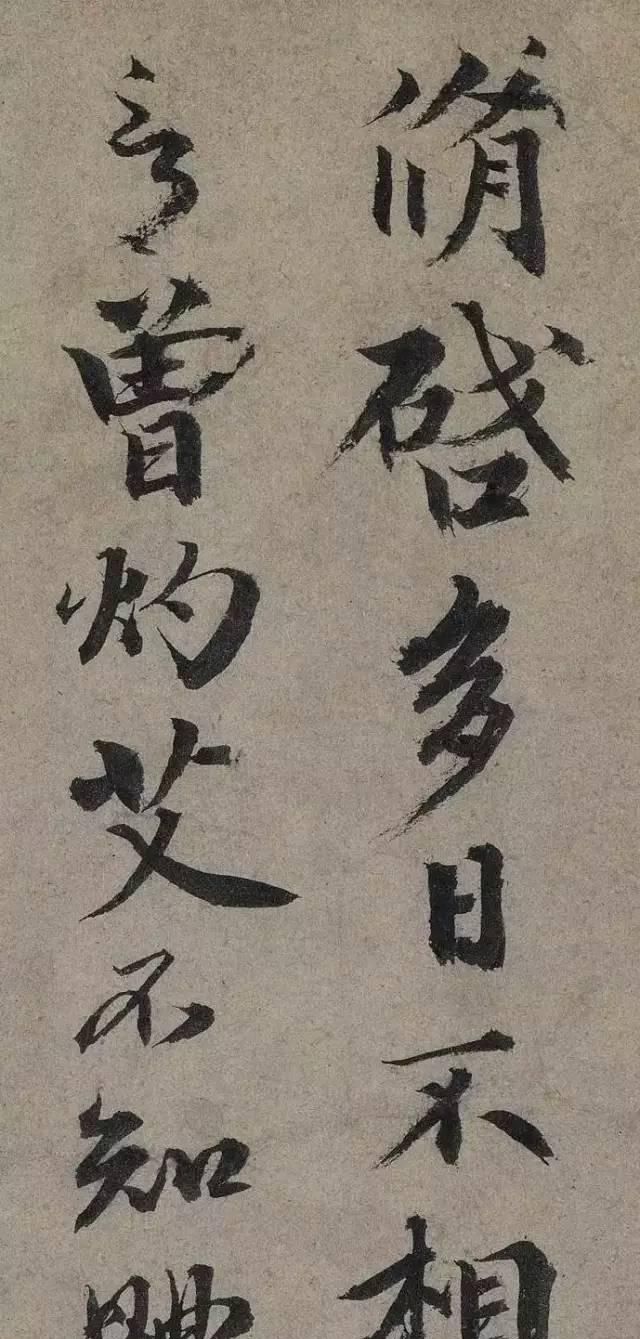 脩啓多日不相
言曾灼艾不知